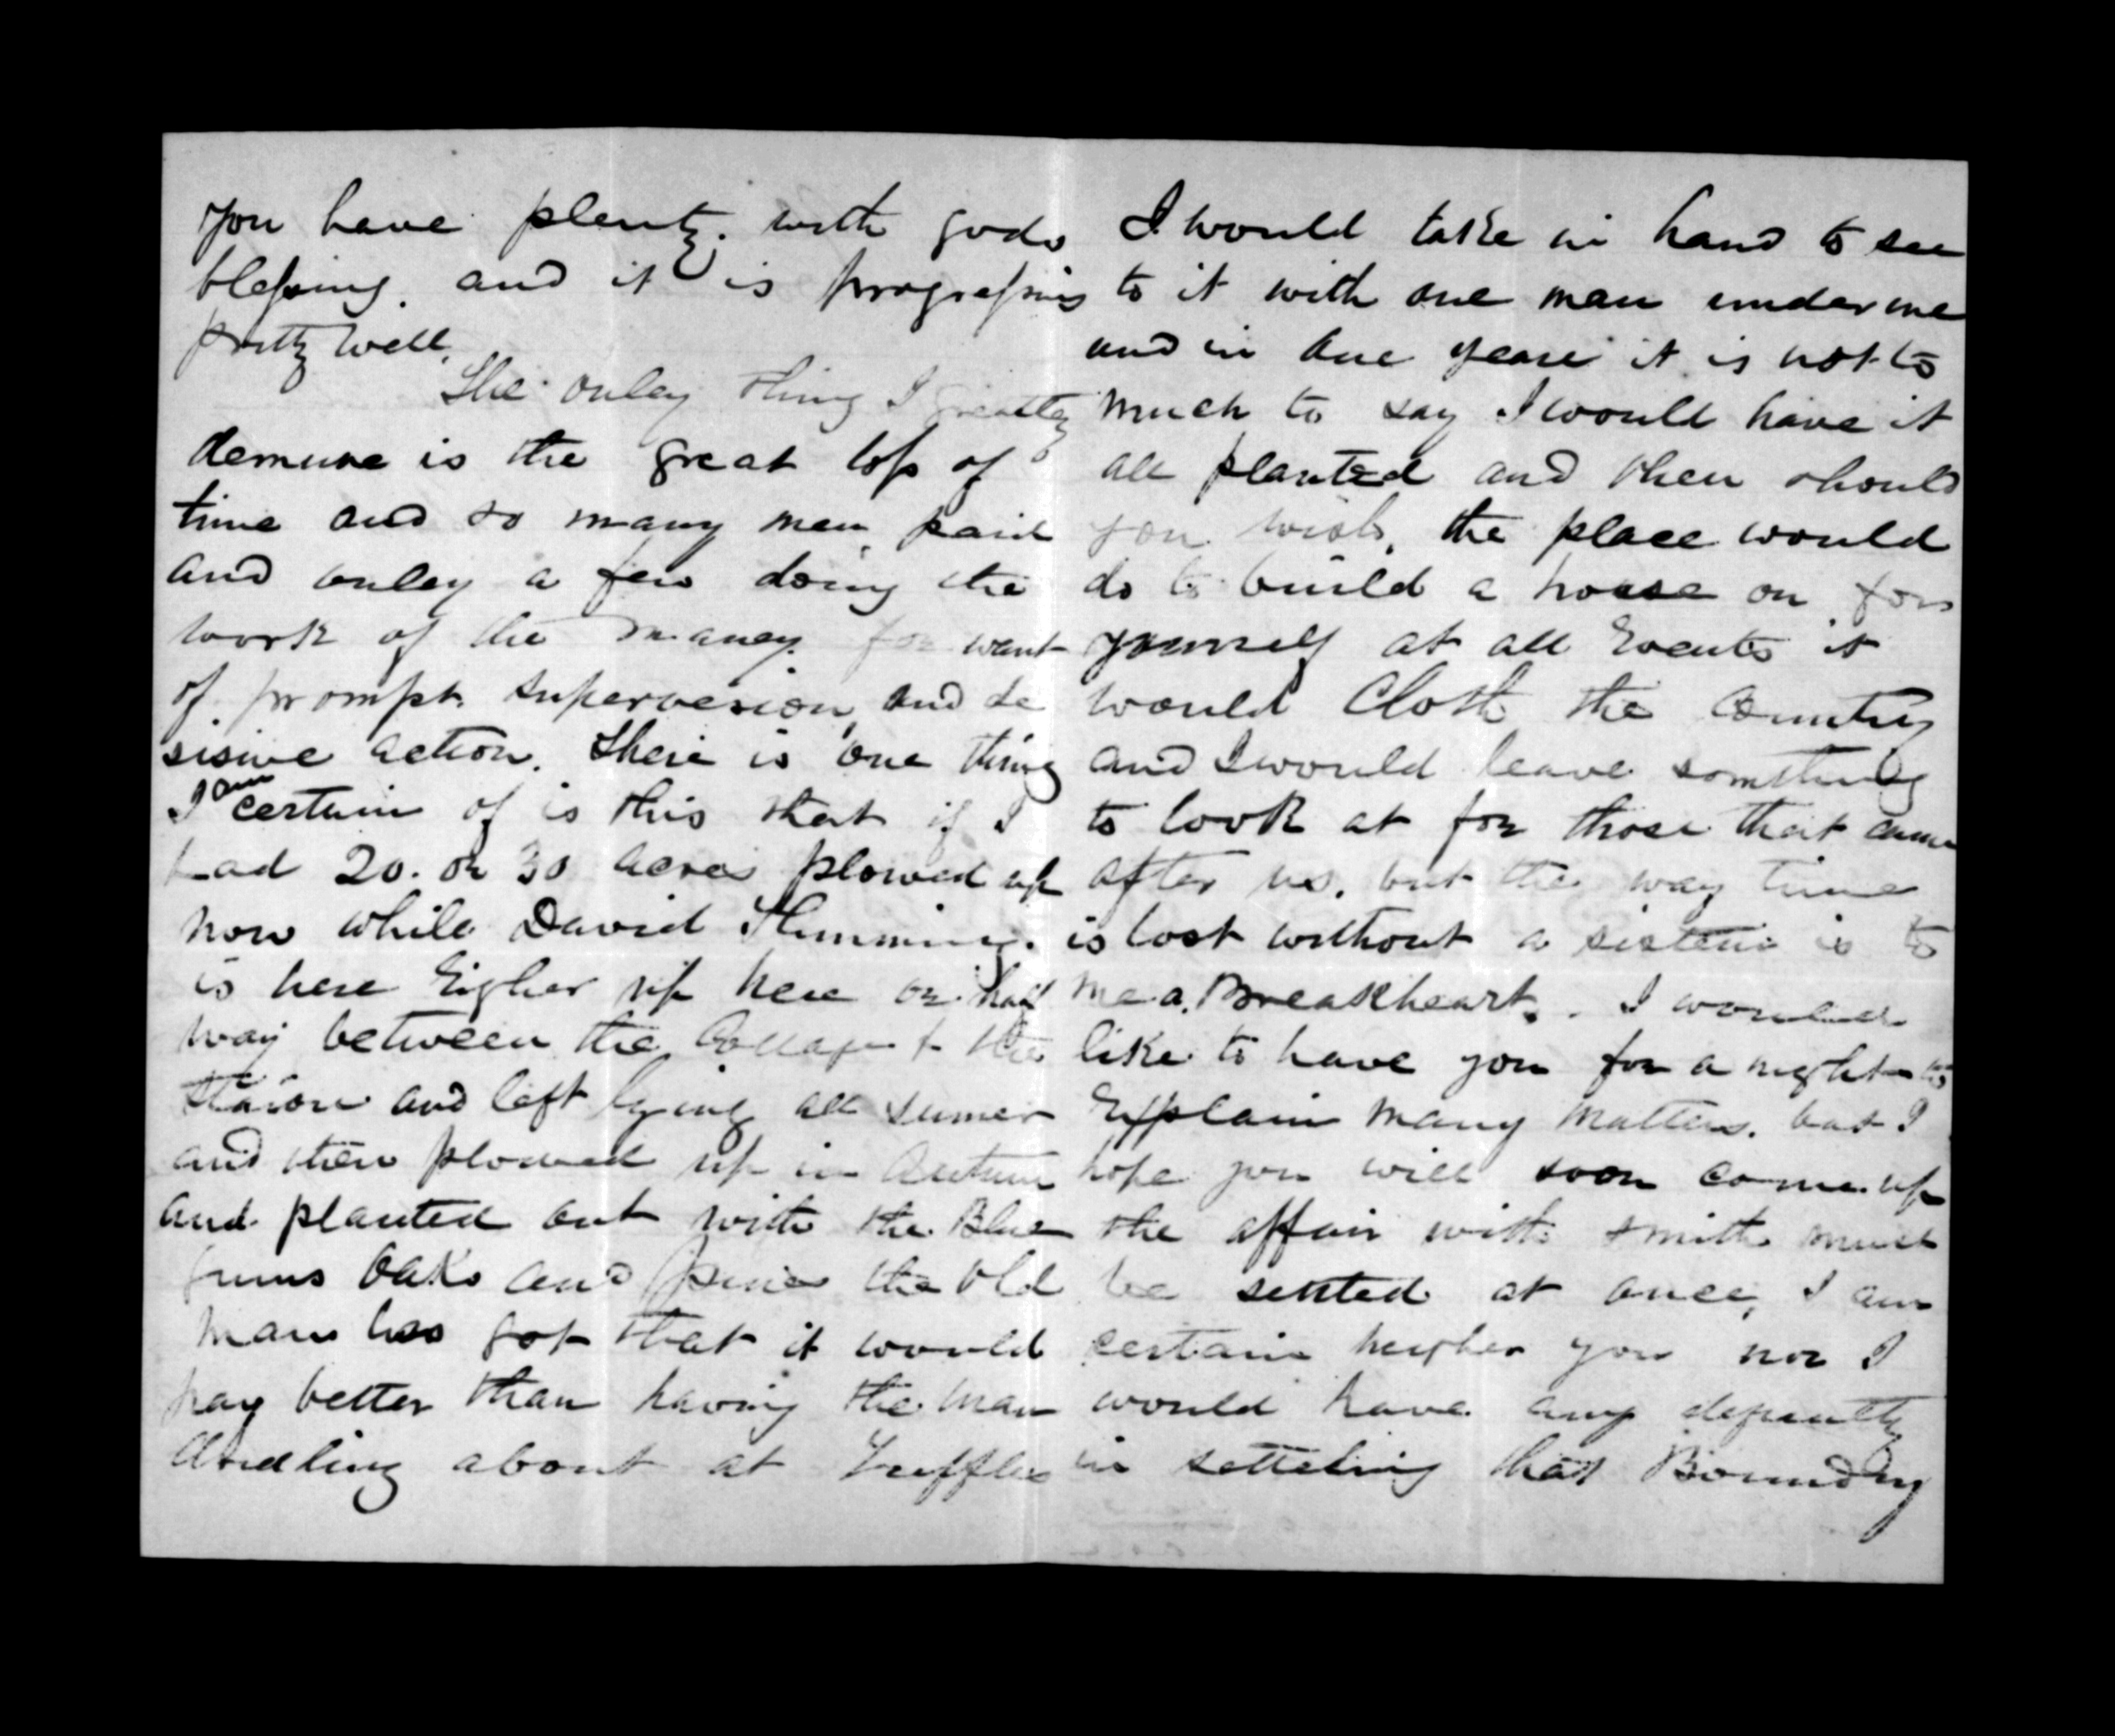 you have plenty. with gods
blessing. and it is progressing
pretty well.
The onley thing I greatly
demure is the great loss of
time and so many men paid
and onley a few doing the
work of the maney for want
of prompt. supervesion and de
sisive action. There is one thing
I am certain of is this that if I
had 20. or 30 acres plowed up
now while David Flimming.
is here Eigher up here or half
way between the Cottage & the
staion and left lying all sumer
and then plowed up in Autum
and planted out with the Blue
gums Oaks and pines the Old
man has got that it would
pay better than having the man
dindling about at Truffles
I would take in hand to see
to it with one man under me
and in one yeare it is not to
much to say I would have it
all planted and then should
you wish, the place would
do to build a house on for
yourself at all Events it
would Cloth the Country
and I would leave something
to look at for those that came
after us. but the way time
is lost without a sistem is to
me a Breakheart. I would
like to have you for a night to
Explain many matters. but I
hope you will soon come up
the affair with Smith must
be settled at once, I am
certain neigher you nor I
would have any
in setteling that Boundry